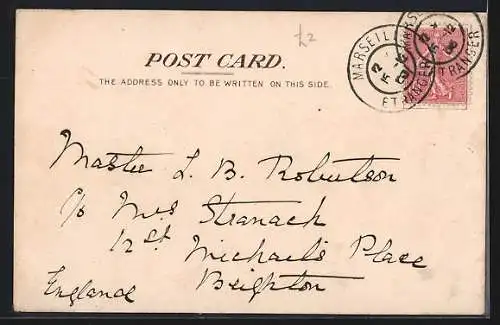 £2
POST CARD.
THE ADDRESS ONLY TO BE WRITTEN ON THIS SIDE.
MARSEILLE
ETRANGER
MARSE
ETRANGER
Master L. B. Robertson
c/o Mrs Stranach
12 St Michael's Place
Brighton
England